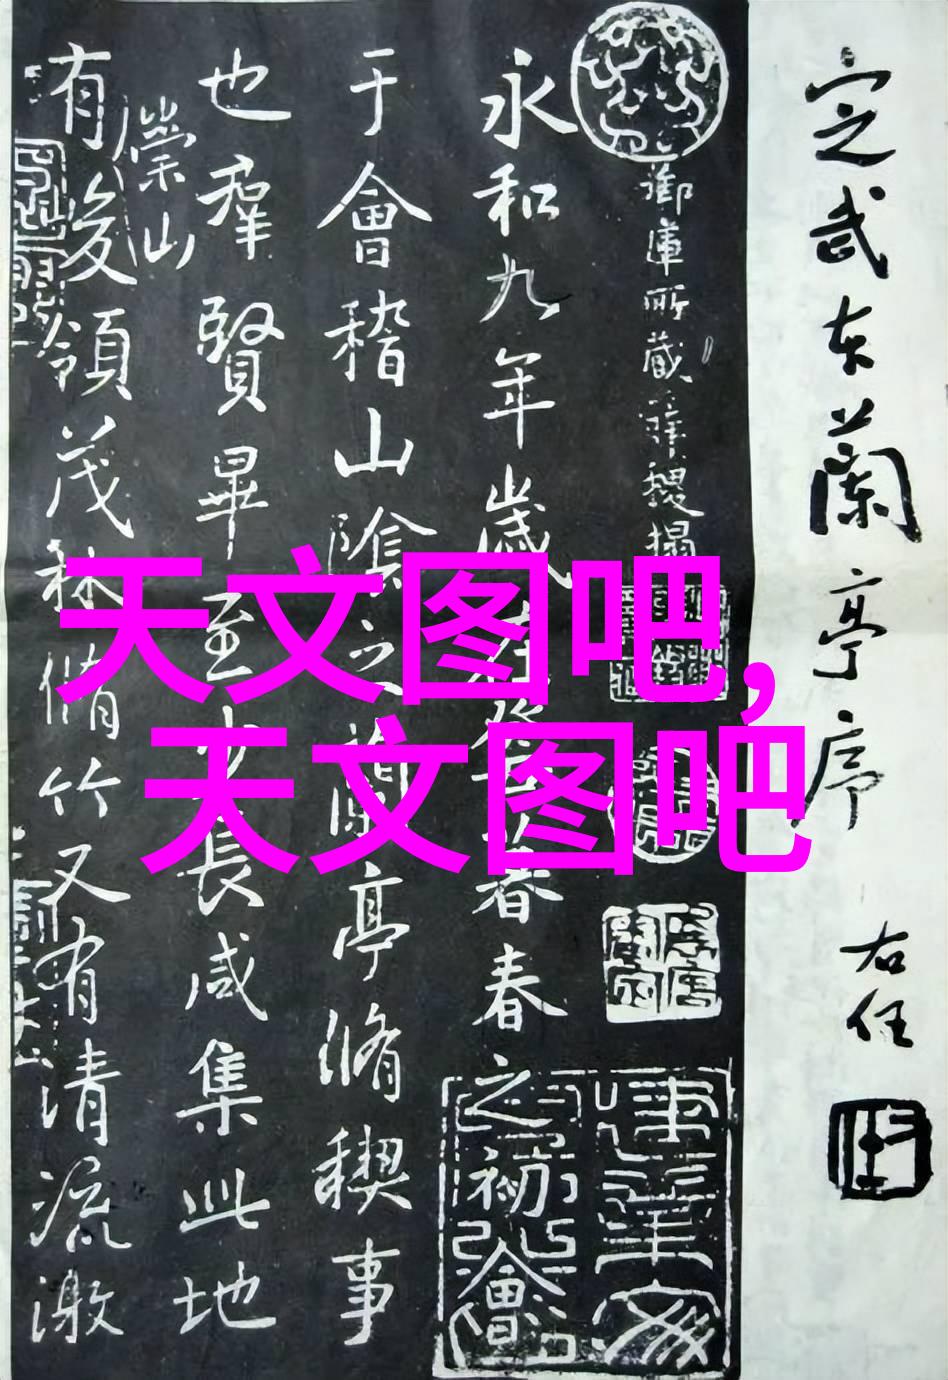 定武本蘭亭序
右任
御庫所藏薛稷搨
永和九年歲在癸丑暮春之初會
于會稽山陰之蘭亭脩稧事
也羣賢畢至少長咸集此地
崇山
有峻領茂林脩竹又有清流激
天文图吧,
天文图吧